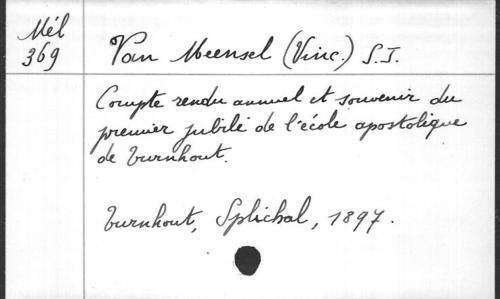 Mél
369
Van Meensel (Vinc.) S.J.
Compte rendu annuel et souvenir du
premier jubilé de l'école apostolique
de Turnhout.
Turnhout, Splichal, 1897.